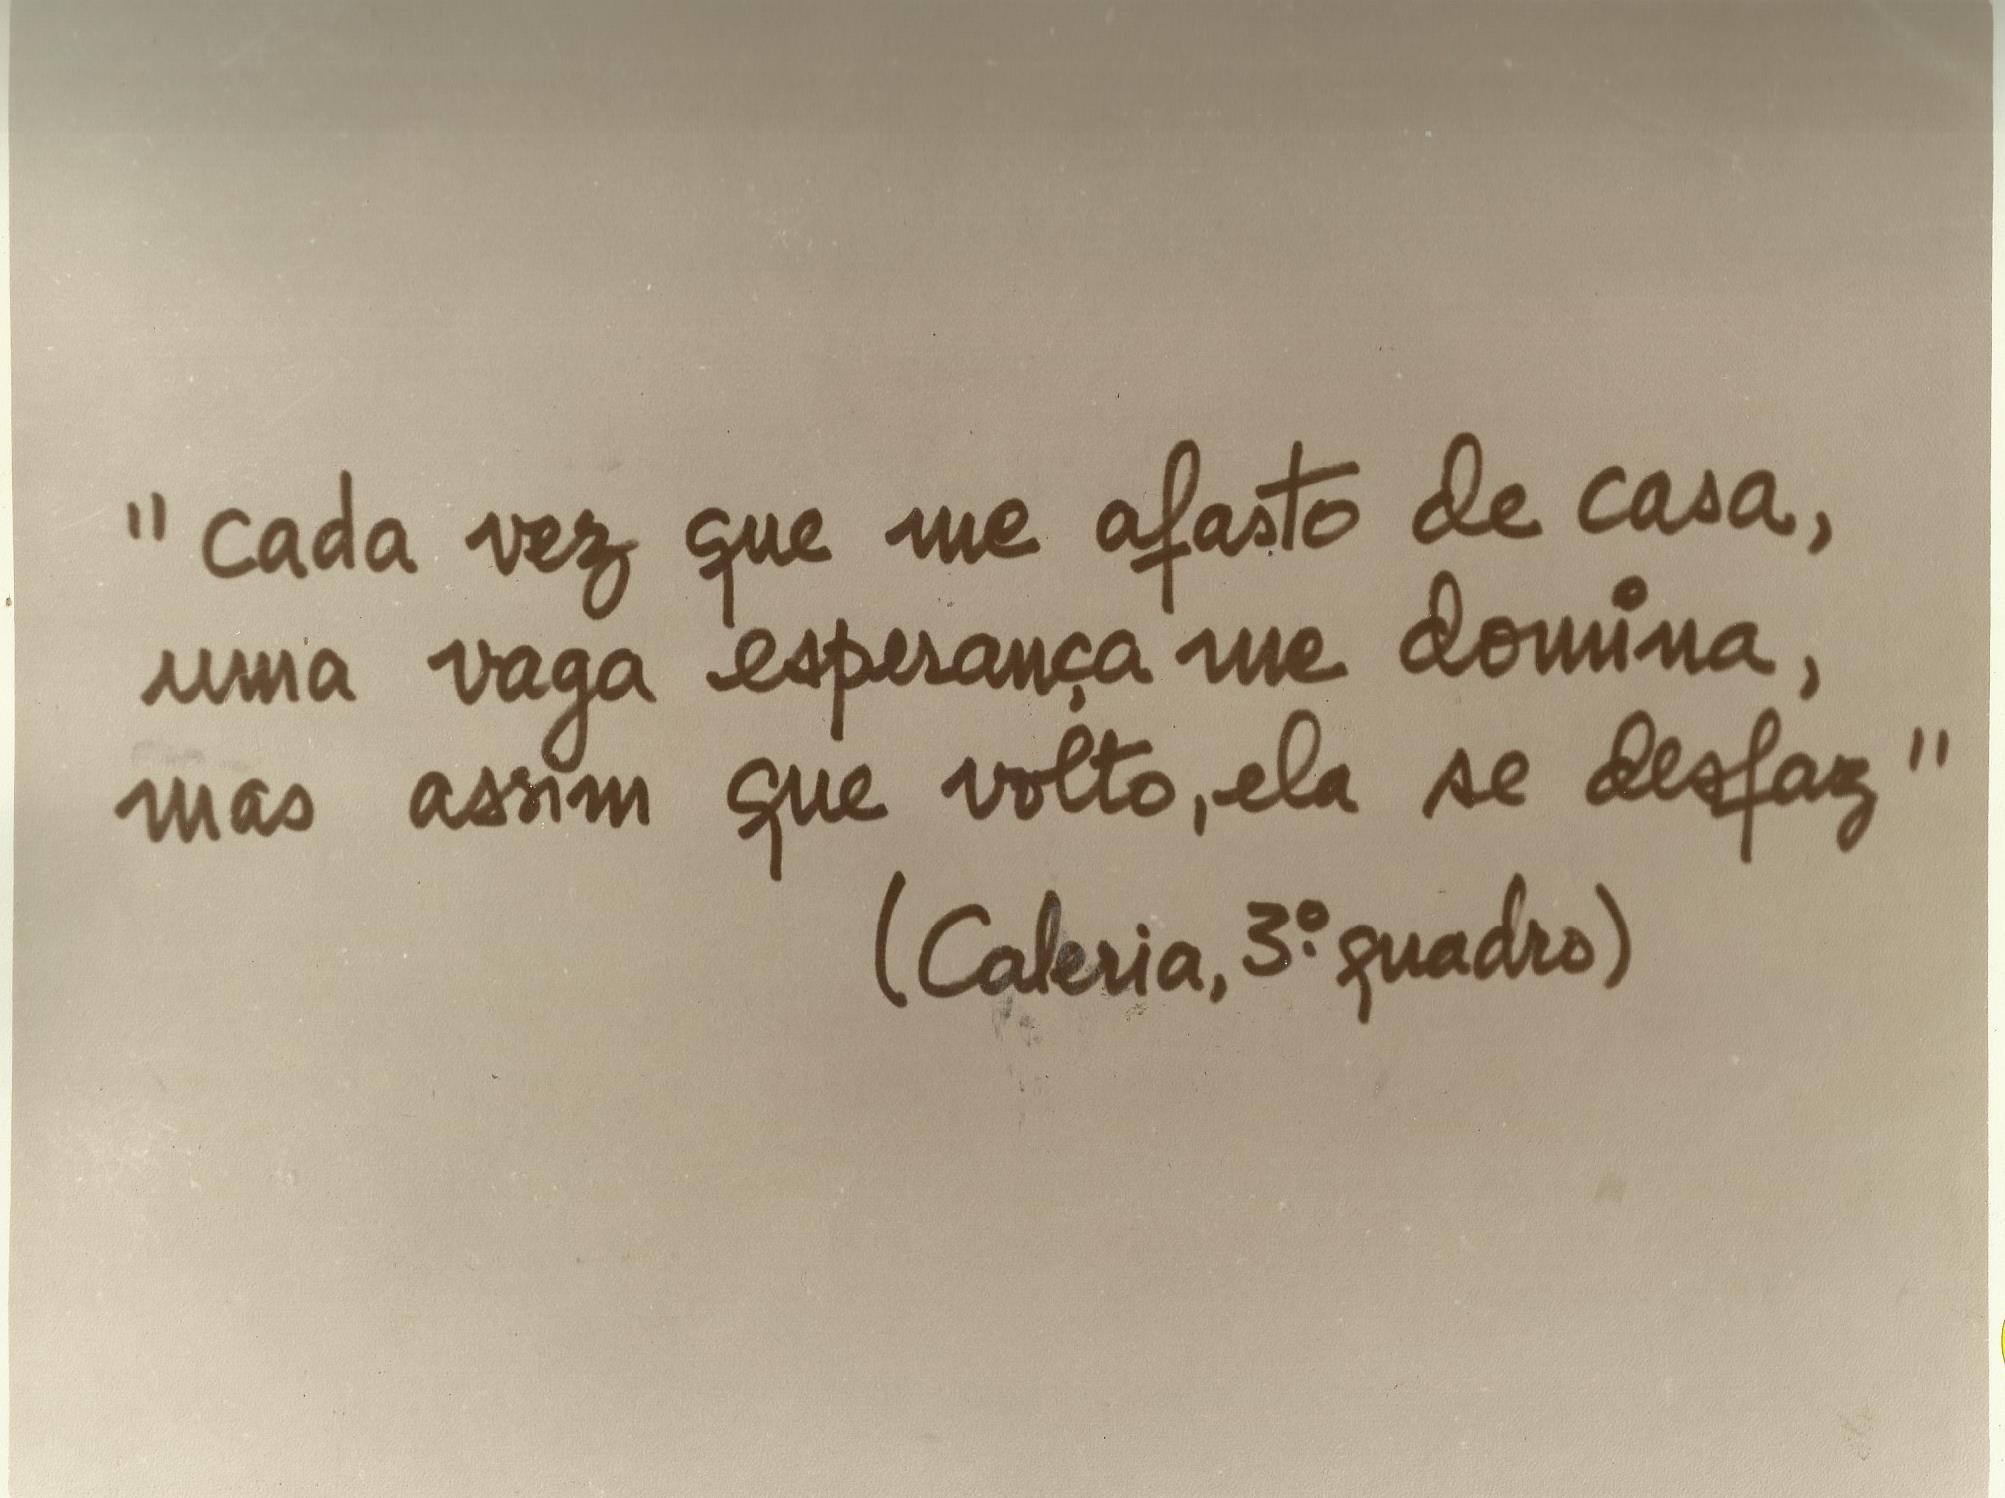 "cada vez que me afasto de casa,
uma vaga esperança me domina,
mas assim que volto, ela se desfaz"
(Caleria, 3º quadro)